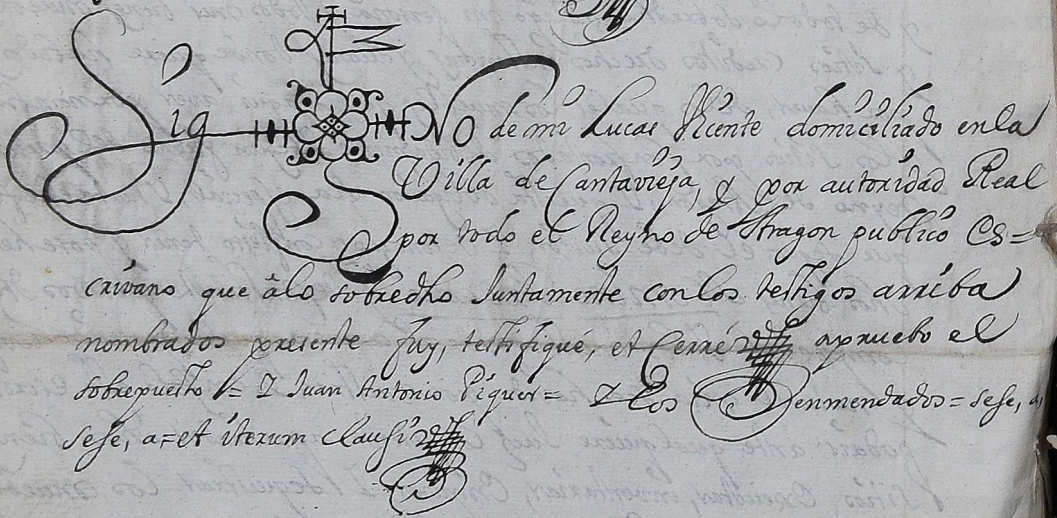 Sig No de mi Lucas Vicente domiciliado en la
Villa de Cantavieja, y por autoridad Real
por todo el Reyno de Aragon publico Es=
crivano que âlo sobredho Juntamente con los testigos arriba
nombrados presente fuy, testifiqué, et Cerré apruebo el
sobrepuesto = Y Juan Antonio Piquer = Y los enmendados = sese, a,
sese, a = et iterum clausi